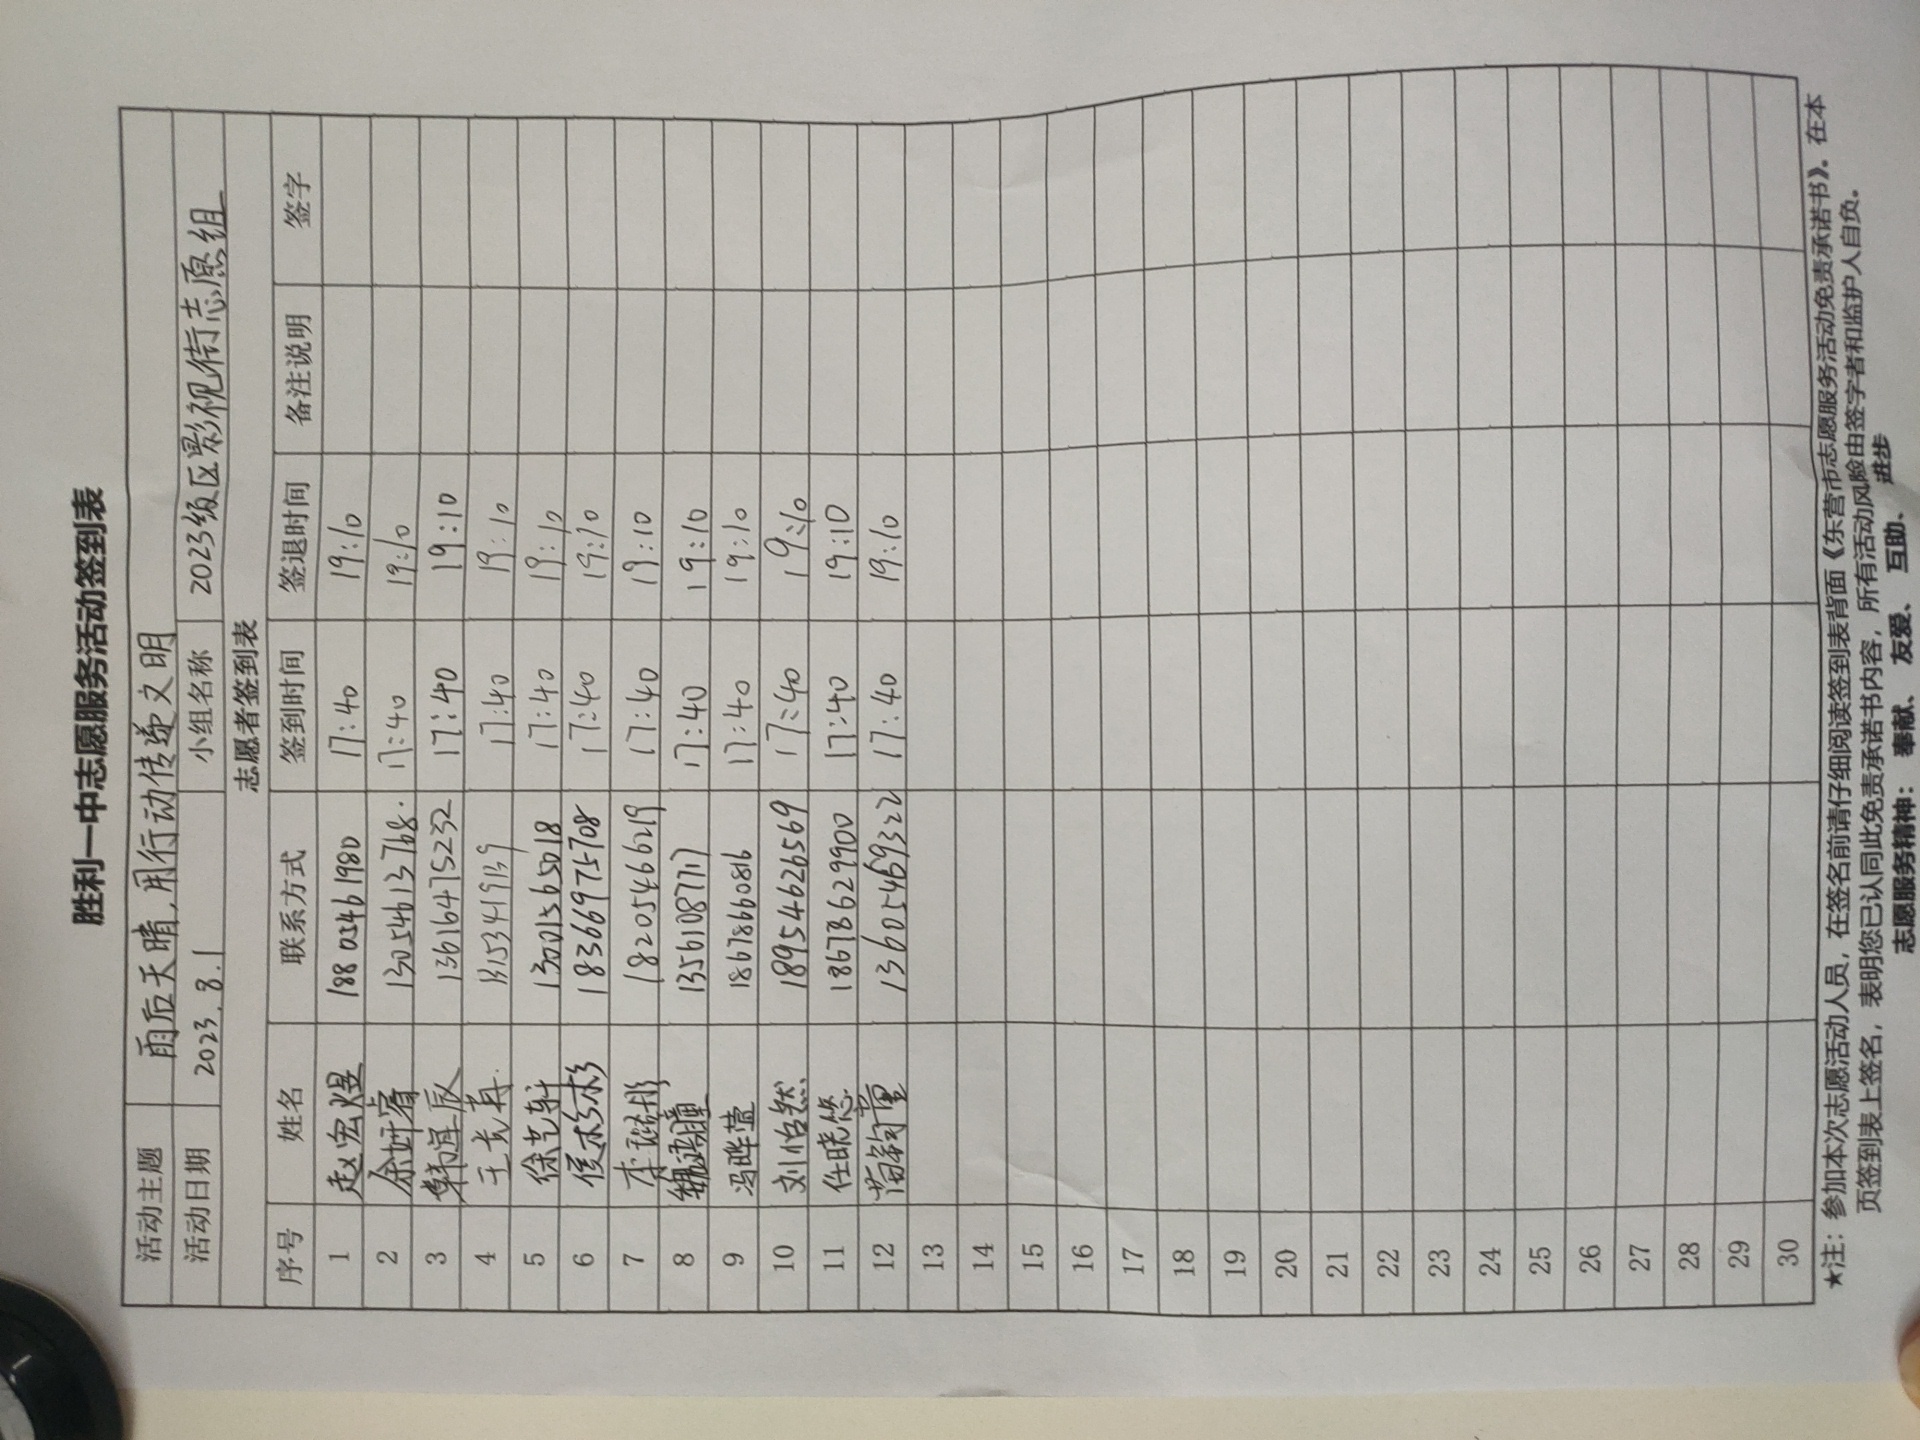 胜利一中志愿服务活动签到表
活动主题 雨后天晴,用行动传递文明
活动日期 2023.8.1 小组名称 2023级区影视街志愿组
志愿者签到表
序号 姓名 联系方式 签到时间 签退时间 备注说明 签字
1 赵宏煜 18805461980 17:40 19:10
2 余妍睿 13054613768. 17:40 19:10
3 韩宜辰 13616475232 17:40 19:10
4 王长冉 17:40 19:10
5 徐艺轩 13001565018 17:40 19:10
6 侯杉杉 18366975708 17:40 19:10
7 李 18205466219 17:40 19:10
8 17:40 19:10
9 冯晔萱 18678660816 17:40 19:10
10 刘怡然 18954626569 17:40 19:10
11 任晓悠 18678629900 17:40 19:10
12 13605469322 17:40 19:10
13
14
15
16
17
18
19
20
21
22
23
24
25
26
27
28
29
30
★注:参加本次志愿活动人员,在签名前请仔细阅读签到表背面《东营市志愿服务活动免责承诺书》。在本
页签到表上签名,表明您已认同此免责承诺书内容,所有活动风险由签字者和监护人自负。
志愿服务精神: 奉献、 友爱、 互助、 进步